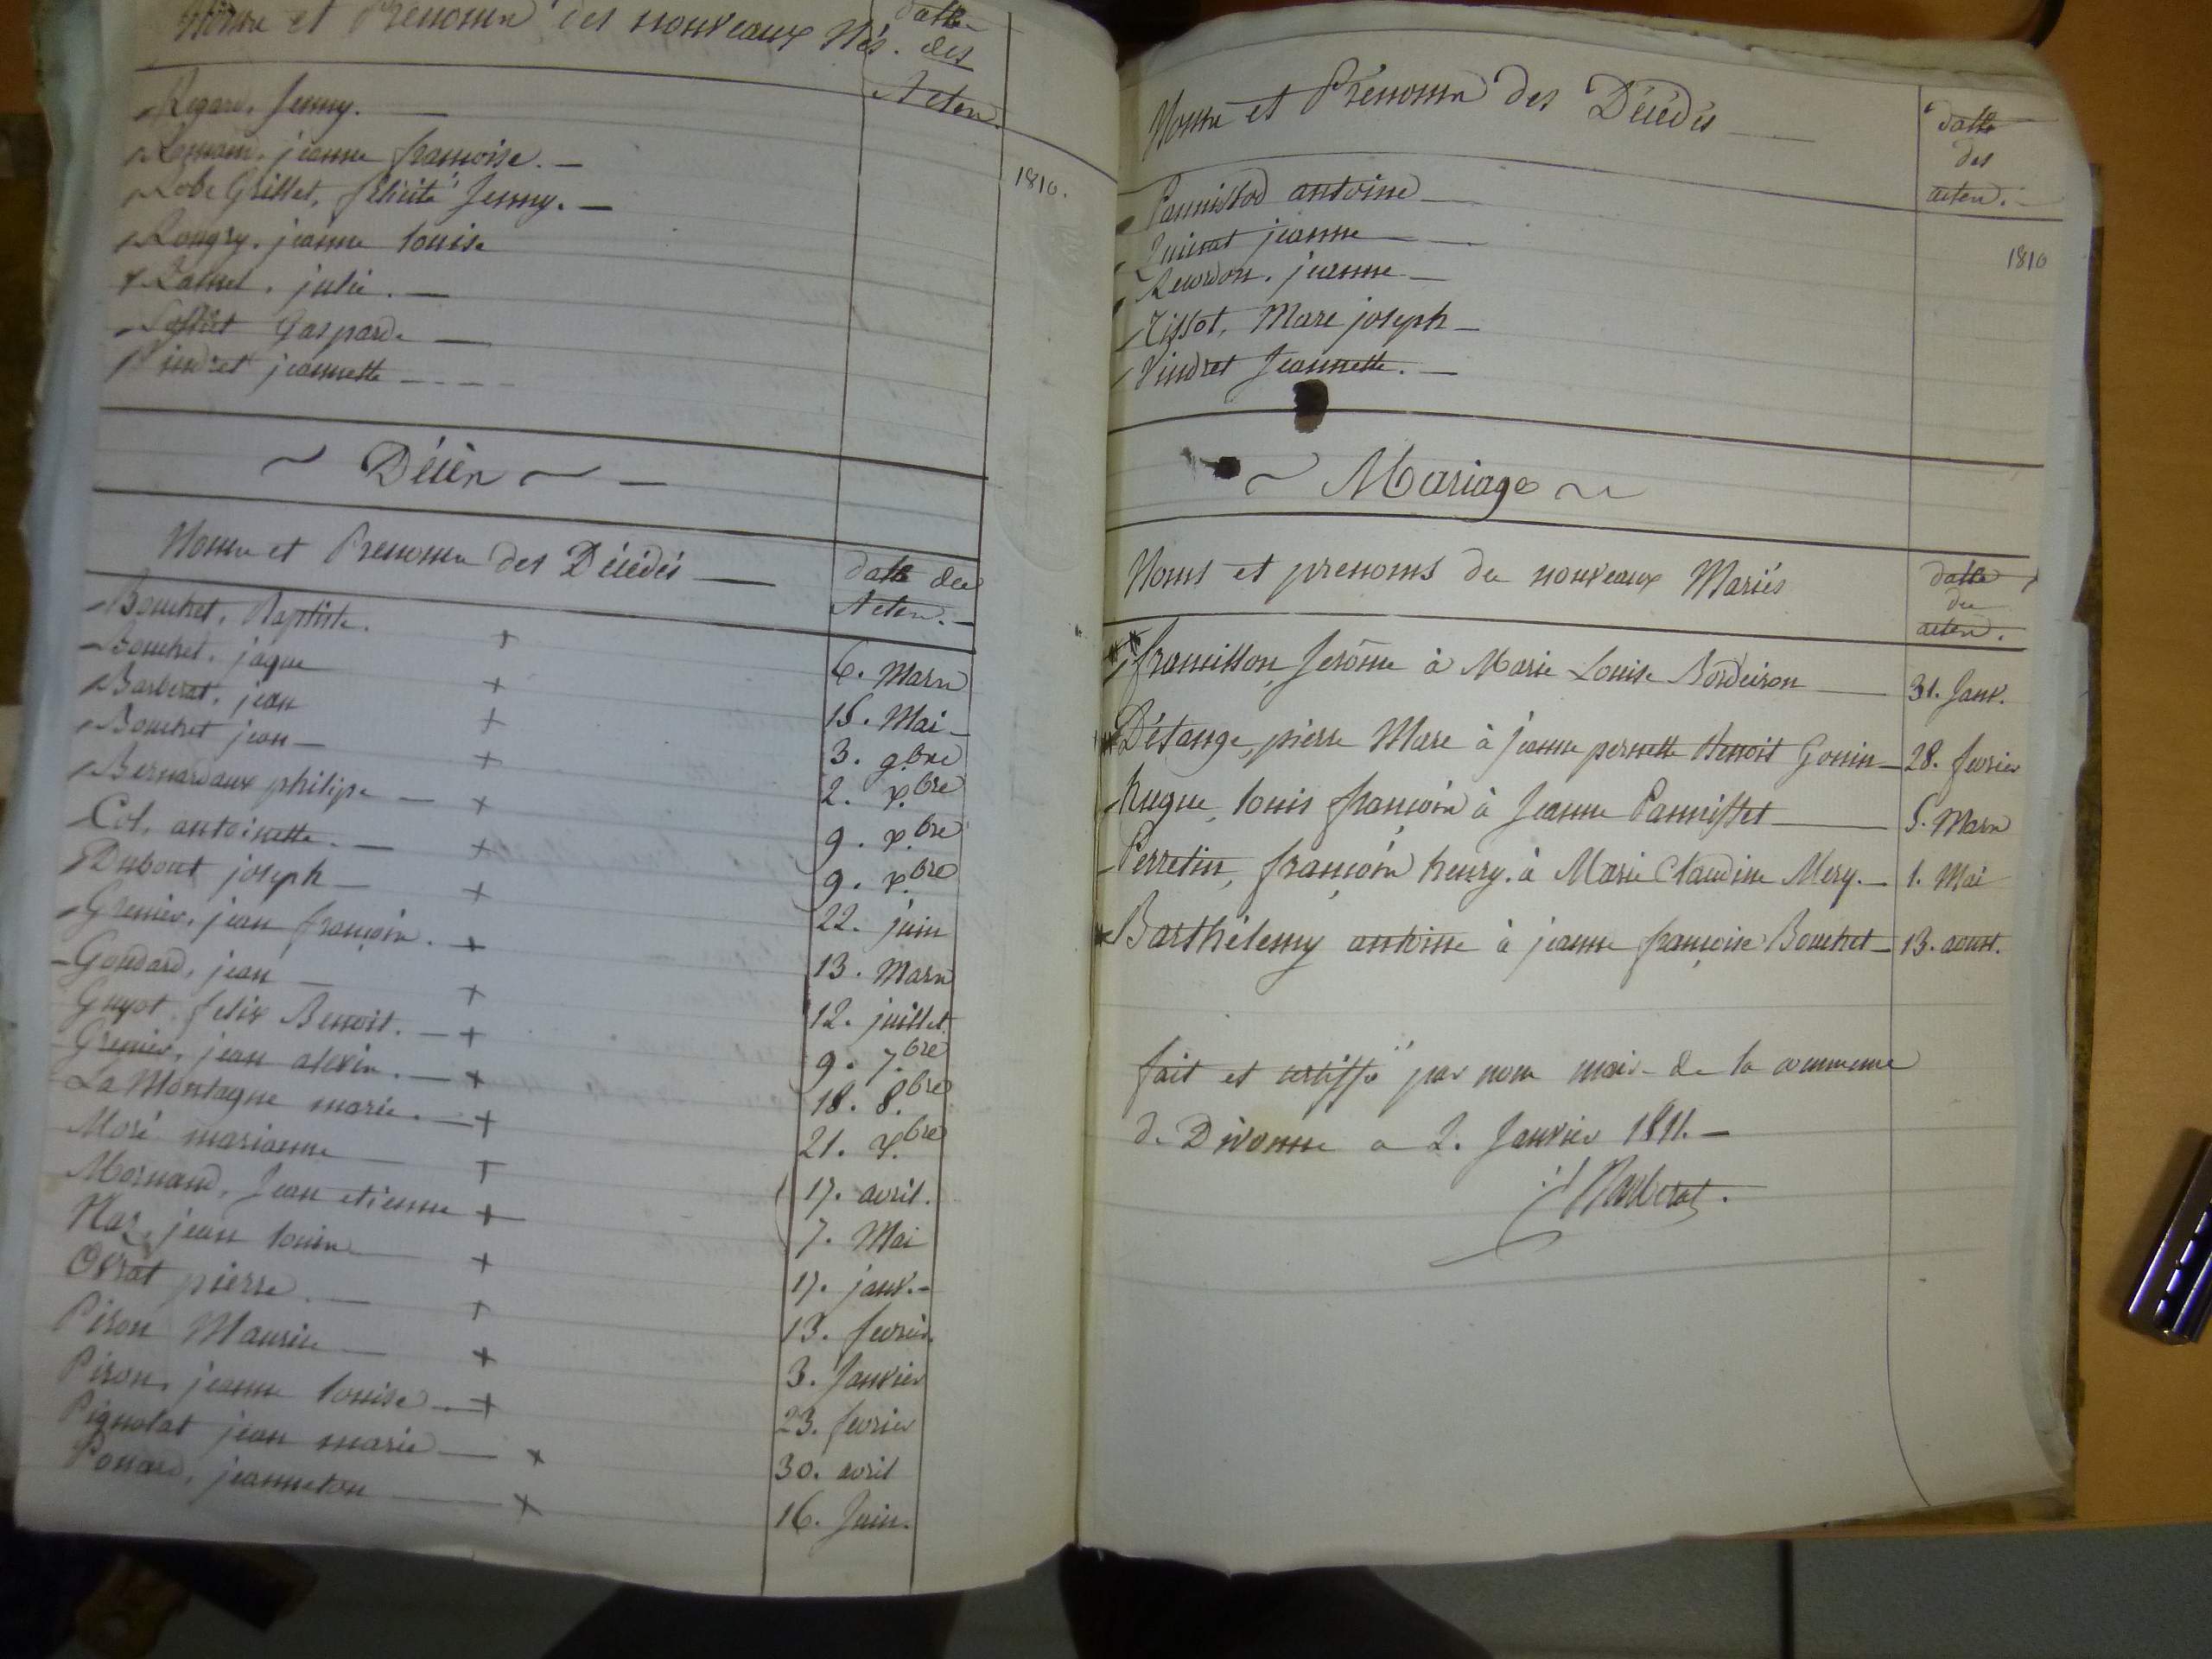 Noms et Prenoms des nouveaux Nés.
datte
des
Actes.
1810.
Regard, Jenny.
jeanne françoise.
Robe Grillet, félicité Jenny.
Rougry, jeanne louise
julie.
Gaspard
Vindret jeannette
Décès
Noms et Prenoms des Décédés
datte des
Actes.
Bouchet, Baptiste. + 6. Mars
Bouchet, jaque + 15. Mai
Barberat, jean + 3. 9.bre
Bouchet jean + 2. x.bre
Bernardaux philipe + 9. x.bre
Col, antoinette. + 9. x.bre
Dubout joseph + 22. juin
Grenier, jean françois. + 13. Mars
Goudard, jean + 12. juillet
Guyot, felix Benoit. + 9. 7.bre
Grenier, jean alexis. + 18. 8.bre
La Montagne marie. + 21. x.bre
Moré marianne + 17. avril.
Mornand, Jean etienne + 7. Mai
Naz, jean louis + 17. janv.
Ovrat pierre. + 13. fevrier.
Piron Maurice + 3. Janvier
Piron, jeanne louise + 23. fevrier
Pignolat jean marie + 30. avril
Ponard, jeanneton + 16. Juin.
Noms et Prénoms des Décédés
datte
des
actes.
1810
Pannissod antoine
jeanne
Reurdon, jeanne
Tissot, Marc joseph
Vindret Jeannette.
Mariage
Noms et prenoms de nouveaux Mariés
datte
des
actes.
framisson, Jerôme à Marie Louise Bordeiron 31. Janv.
Détange, pierre Marc à jeanne pernette Benoit Gonin 28. fevrier
hugue, louis françois à Jeanne Pannisset 5. Mars
Perretin, françois henry. à Marie Claudine Mery. 1. Mai
Barthélemy antoine à jeanne françoise Bouchet 13. aoust.
fait et certiffé par nous maire de la commune
de Divonne a 2. Janvier 1811.
Barberat.